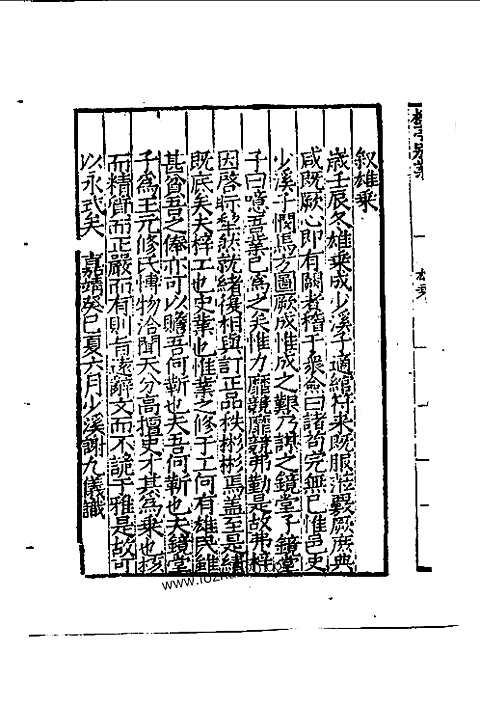 叙雄乗
歳壬辰冬雄乗成少溪子適綰符来既服涖數厥庶典
咸既厥心即有闕者稽于衆僉曰諸苟完無已惟邑史
少溪子憫焉方圖厥成惟成之艱乃謀之鏡堂子鏡堂
子曰噫吾業已為之矣惟力靡競靡弗勤是故弗梓
因啓昕梨然就緒復相與訂正品秩彬彬焉盖至是績
既底矣夫梓工也史業也惟業之修于工何有雄民雖
甚貧吾之俸亦可以贍吾何靳也夫吾何靳也夫鏡堂
子為王元修氏博物洽聞天分高擅史才其為乗也核
而精質而正嚴而有則有遠辭文而不詭于雅是故可
以永式矣 嘉靖癸巳夏六月少溪謝九儀識
雄乗